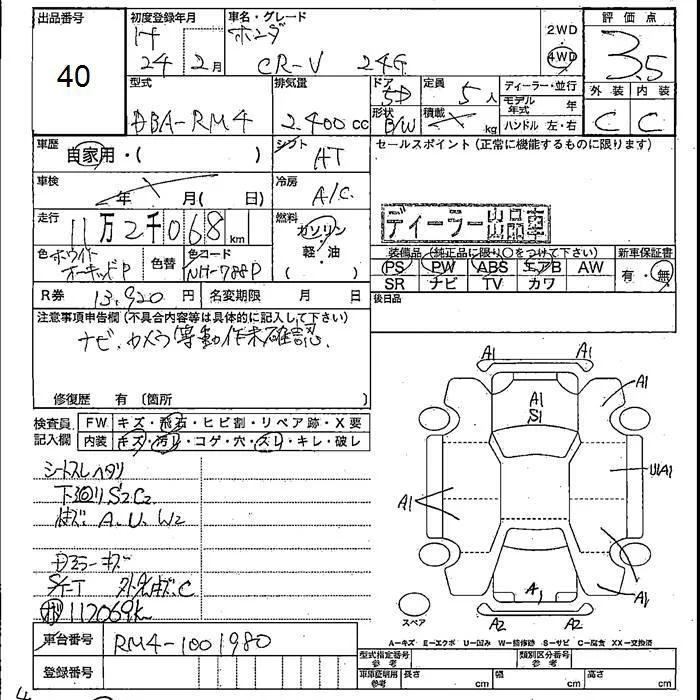 出品番号 初度登録年月 車名・グレード 2WD 評価点
H ホンダ 4WD 3.5
40 24 2月 CR-V 24G
型式 排気量 ドア 定員 ディーラー・並行 外装 内装
5D 5人 モデル年式 年
DBA-RM4 2.400cc 形状 積載 kg ハンドル 左・右 C C
B/W
車歴 自家用・( ) シフト AT セールスポイント (正常に機能するものに限ります)
車検 年 月( 日) 冷房 A/C
走行 11万2千068km 燃料 ガソリン ディーラー出品車
軽・油
色 ホワイトオーキッドP 色替 色コード NH-788P ( ) 装備品 (純正品に限り○をつけて下さい) 新車保証書
PS PW ABS エアB AW 有・無
R券 13,920円 名変期限 月 日 SR ナビ TV カワ
後日品
注意事項申告欄(不具合内容等は具体的に記入して下さい)
ナビ.カメラ等動作未確認.
修復歴 有 〔箇所 〕
検査員記入欄 FW キズ・飛石・ヒビ割・リペア跡・X要
内装 キズ・汚レ・コゲ・穴・スレ・キレ・破レ
シートスレヘタリ
下廻りS2C2
A.U.W2
キズ
C
112069K
A1 A1
A1 S1 A1
A1 UIA1
A1 A1
A2 A2
スペア
A-キズ E-エクボ U-凹み W-補修跡 S-サビ C-腐食 XX-交換済
車台番号 RM4-1001980 型式指定番号 参考 類別区分番号 参考
登録番号 車庫証明用 参考 長さ cm 幅 cm 高さ cm